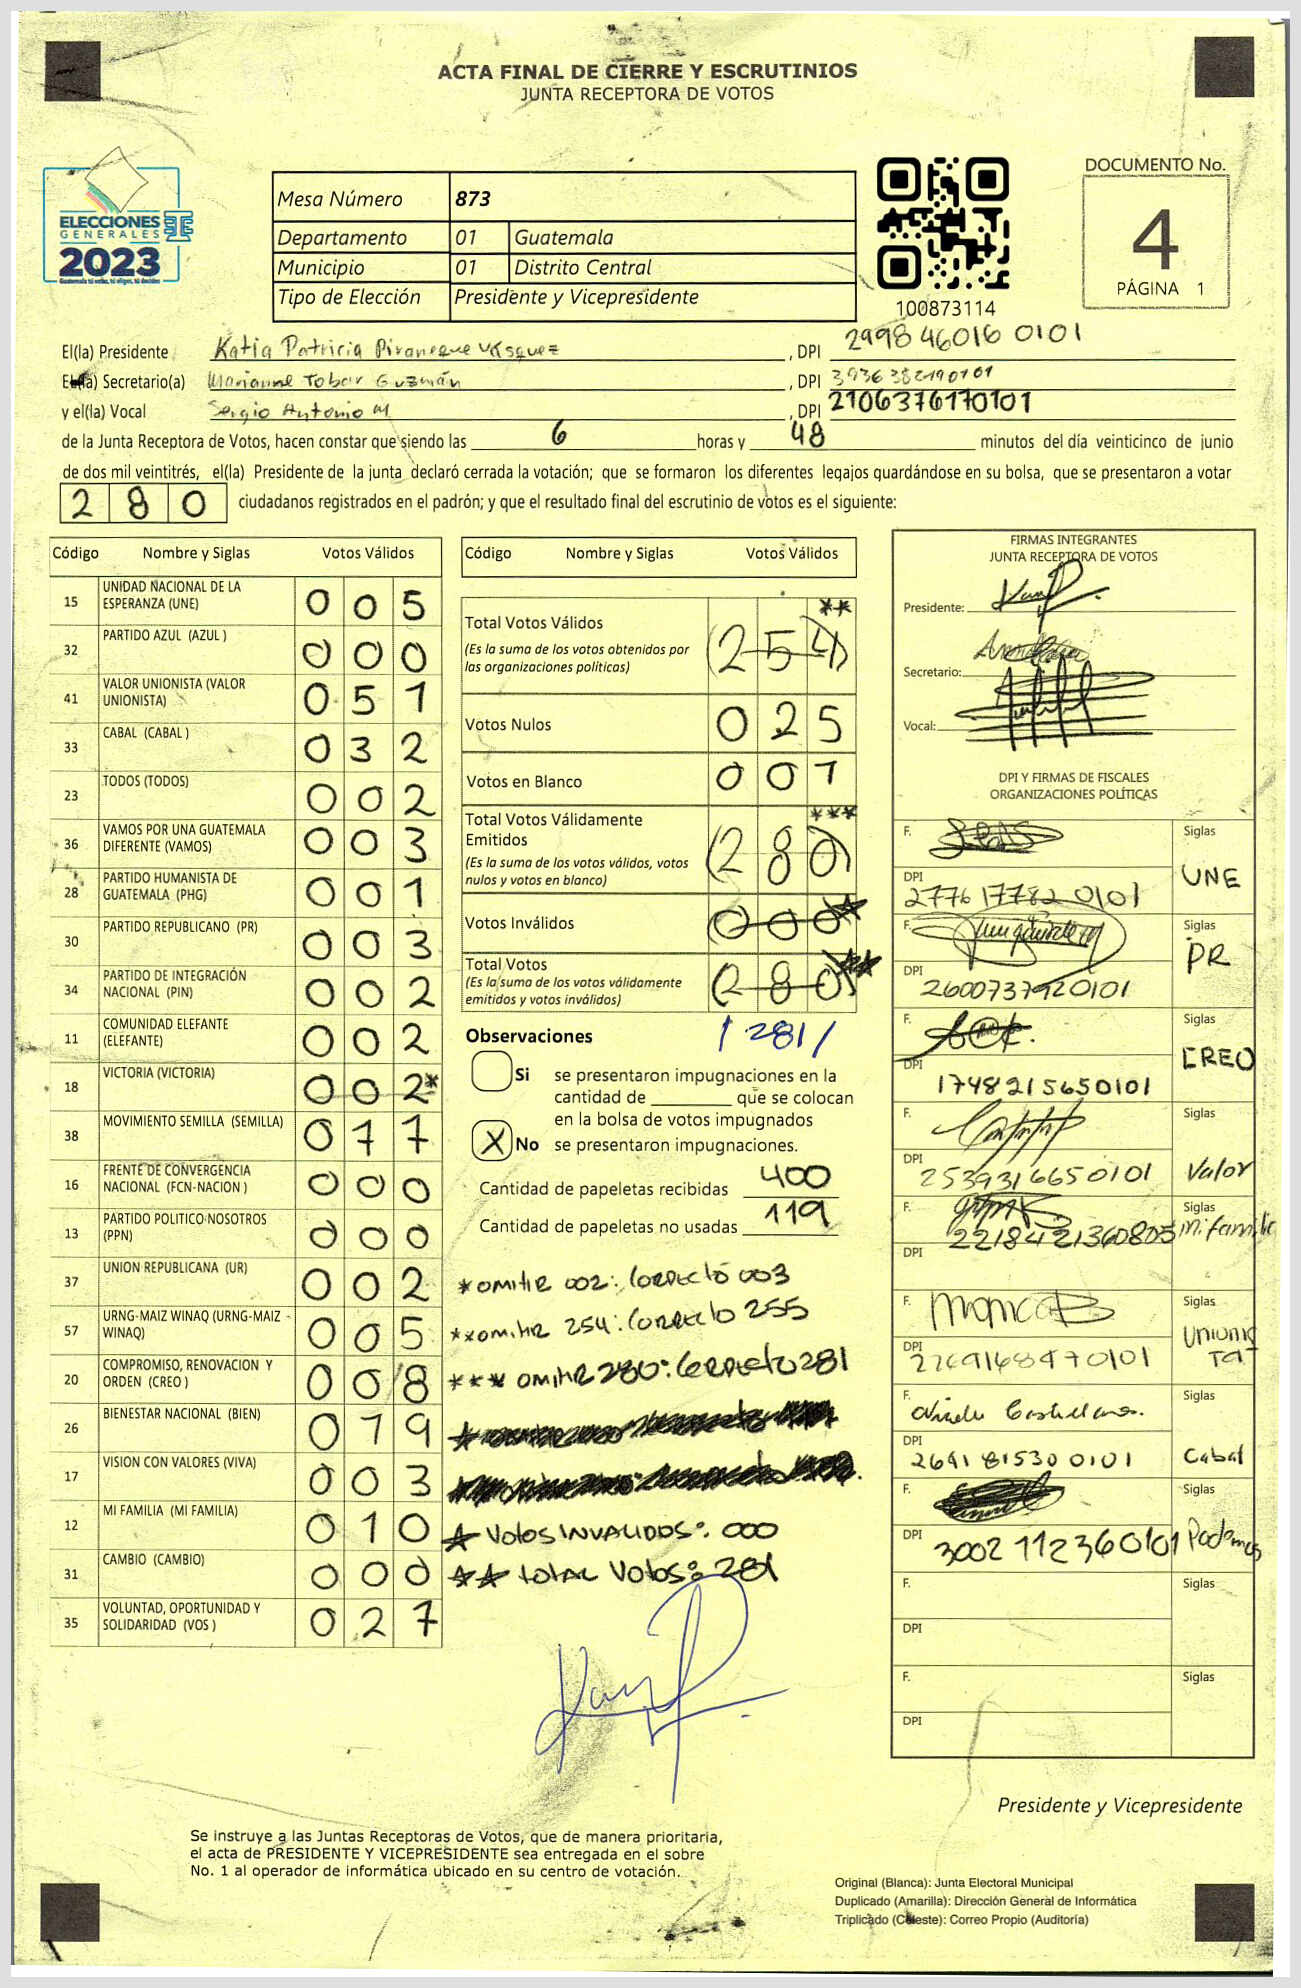 ACTA FINAL DE CIERRE Y ESCRUTINIOS
JUNTA RECEPTORA DE VOTOS
ELECCIONES
GENERALES
2023
Guatemala tú votas, tú eliges, tú decides
Mesa Número 873
Departamento 01 Guatemala
Municipio 01 Distrito Central
Tipo de Elección Presidente y Vicepresidente
100873114
DOCUMENTO No.
4
PÁGINA 1
El(la) Presidente Katia Patricia Piraneque Vásquez, DPI 2998 46016 0101
El(la) Secretario(a) Marianne Tobar Guzmán, DPI
y el(la) Vocal Sergio Antonio M, DPI 2106376170101
de la Junta Receptora de Votos, hacen constar que siendo las 6 horas y 48 minutos del día veinticinco de junio
de dos mil veintitrés, el(la) Presidente de la junta declaró cerrada la votación; que se formaron los diferentes legajos guardándose en su bolsa, que se presentaron a votar
280 ciudadanos registrados en el padrón; y que el resultado final del escrutinio de votos es el siguiente:
Código Nombre y Siglas Votos Válidos
15 UNIDAD NACIONAL DE LA ESPERANZA (UNE) 005
32 PARTIDO AZUL (AZUL ) 000
41 VALOR UNIONISTA (VALOR UNIONISTA) 051
33 CABAL (CABAL ) 032
23 TODOS (TODOS) 002
36 VAMOS POR UNA GUATEMALA DIFERENTE (VAMOS) 003
28 PARTIDO HUMANISTA DE GUATEMALA (PHG) 001
30 PARTIDO REPUBLICANO (PR) 003
34 PARTIDO DE INTEGRACIÓN NACIONAL (PIN) 002
11 COMUNIDAD ELEFANTE (ELEFANTE) 002
18 VICTORIA (VICTORIA) 002*
38 MOVIMIENTO SEMILLA (SEMILLA) 077
16 FRENTE DE CONVERGENCIA NACIONAL (FCN-NACION ) 000
13 PARTIDO POLITICO NOSOTROS (PPN) 000
37 UNION REPUBLICANA (UR) 002
57 URNG-MAIZ WINAQ (URNG-MAIZ - WINAQ) 005
20 COMPROMISO, RENOVACION Y ORDEN (CREO ) 008
26 BIENESTAR NACIONAL (BIEN) 019
17 VISION CON VALORES (VIVA) 003
12 MI FAMILIA (MI FAMILIA) 010
31 CAMBIO (CAMBIO) 000
35 VOLUNTAD, OPORTUNIDAD Y SOLIDARIDAD (VOS ) 027
Código Nombre y Siglas Votos Válidos
Total Votos Válidos (254) **
(Es la suma de los votos obtenidos por
las organizaciones políticas)
Votos Nulos 025
Votos en Blanco 001
Total Votos Válidamente Emitidos (280) ***
(Es la suma de los votos válidos, votos
nulos y votos en blanco)
Votos Inválidos 000 *
Total Votos (280) **
(Es la suma de los votos válidamente
emitidos y votos inválidos)
/ 281 /
Observaciones
Si se presentaron impugnaciones en la
cantidad de ________ que se colocan
en la bolsa de votos impugnados
X No se presentaron impugnaciones.
Cantidad de papeletas recibidas 400
Cantidad de papeletas no usadas 119
*omitir 002: Correcto 003
**omitir 254: Correcto 255
*** omitir 280: Correcto 281
* Votos INVALIDOS: 000
** total Votos: 281
FIRMAS INTEGRANTES
JUNTA RECEPTORA DE VOTOS
Presidente:
Secretario:
Vocal:
DPI Y FIRMAS DE FISCALES
ORGANIZACIONES POLÍTICAS
F. Siglas UNE
DPI 2776 17782 0101
F. Siglas PR
DPI 2600737920101
F. Siglas CREO
DPI 1748215650101
F. Siglas Valor
DPI 2539316650101
F. Siglas mi familia
DPI 2218421360805
F. Monica B Siglas Unionista
DPI
F. Siglas Cabal
DPI 2691 81530 0101
F. Siglas Podemos
DPI 3002 112360101
F. Siglas
DPI
F. Siglas
DPI
Presidente y Vicepresidente
Se instruye a las Juntas Receptoras de Votos, que de manera prioritaria,
el acta de PRESIDENTE Y VICEPRESIDENTE sea entregada en el sobre
No. 1 al operador de informática ubicado en su centro de votación.
Original (Blanca): Junta Electoral Municipal
Duplicado (Amarilla): Dirección General de Informática
Triplicado (Celeste): Correo Propio (Auditoría)